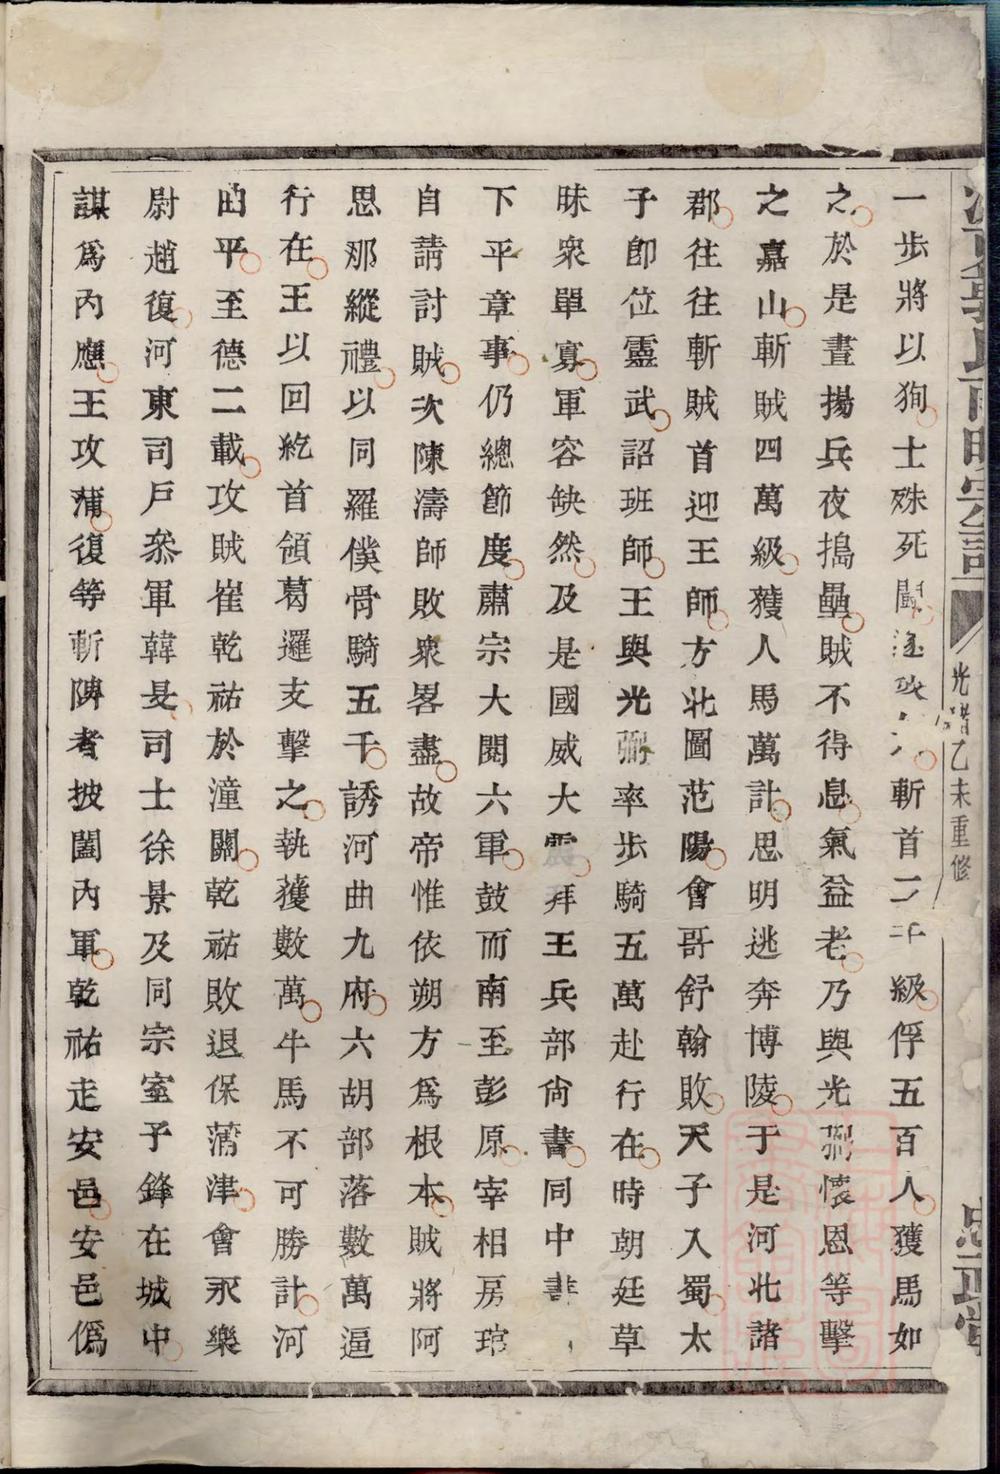 一歩將以狥士殊死鬭遂破斬首二千級俘五百人獲馬如
之於是晝揚兵夜搗壘賊不得息氣益老乃與光弼懷恩等擊
之嘉山斬賊四萬級獲人馬萬計思明逃奔博陵于是河北諸
郡往往斬賊首迎王師方北圖范陽會哥舒翰敗天子入蜀太
子卽位靈武詔班師王與光弼率歩騎五萬赴行在時朝廷草
昧衆單寡軍容缺然及是國威大震拜王兵部尙書同中書
下平章事仍總節度肅宗大閱六軍鼓而南至彭原宰相房琯
自請討賊次陳濤師敗衆畧盡故帝惟依朔方爲根本賊將阿
思那縱禮以同羅僕骨騎五千誘河曲九府六胡部落數萬逼
行在王以回紇首領葛邏支擊之執獲數萬牛馬不可勝計河
曲平至德二載攻賊崔乾祐於潼關乾祐敗退保蒲津會永樂
尉趙復河東司戶叅軍韓旻司士徐景及同宗室子鋒在城中
謀爲內應王攻蒲復等斬陴者披闔內軍乾祐走安邑安邑僞
光緖乙未重修
忠正堂